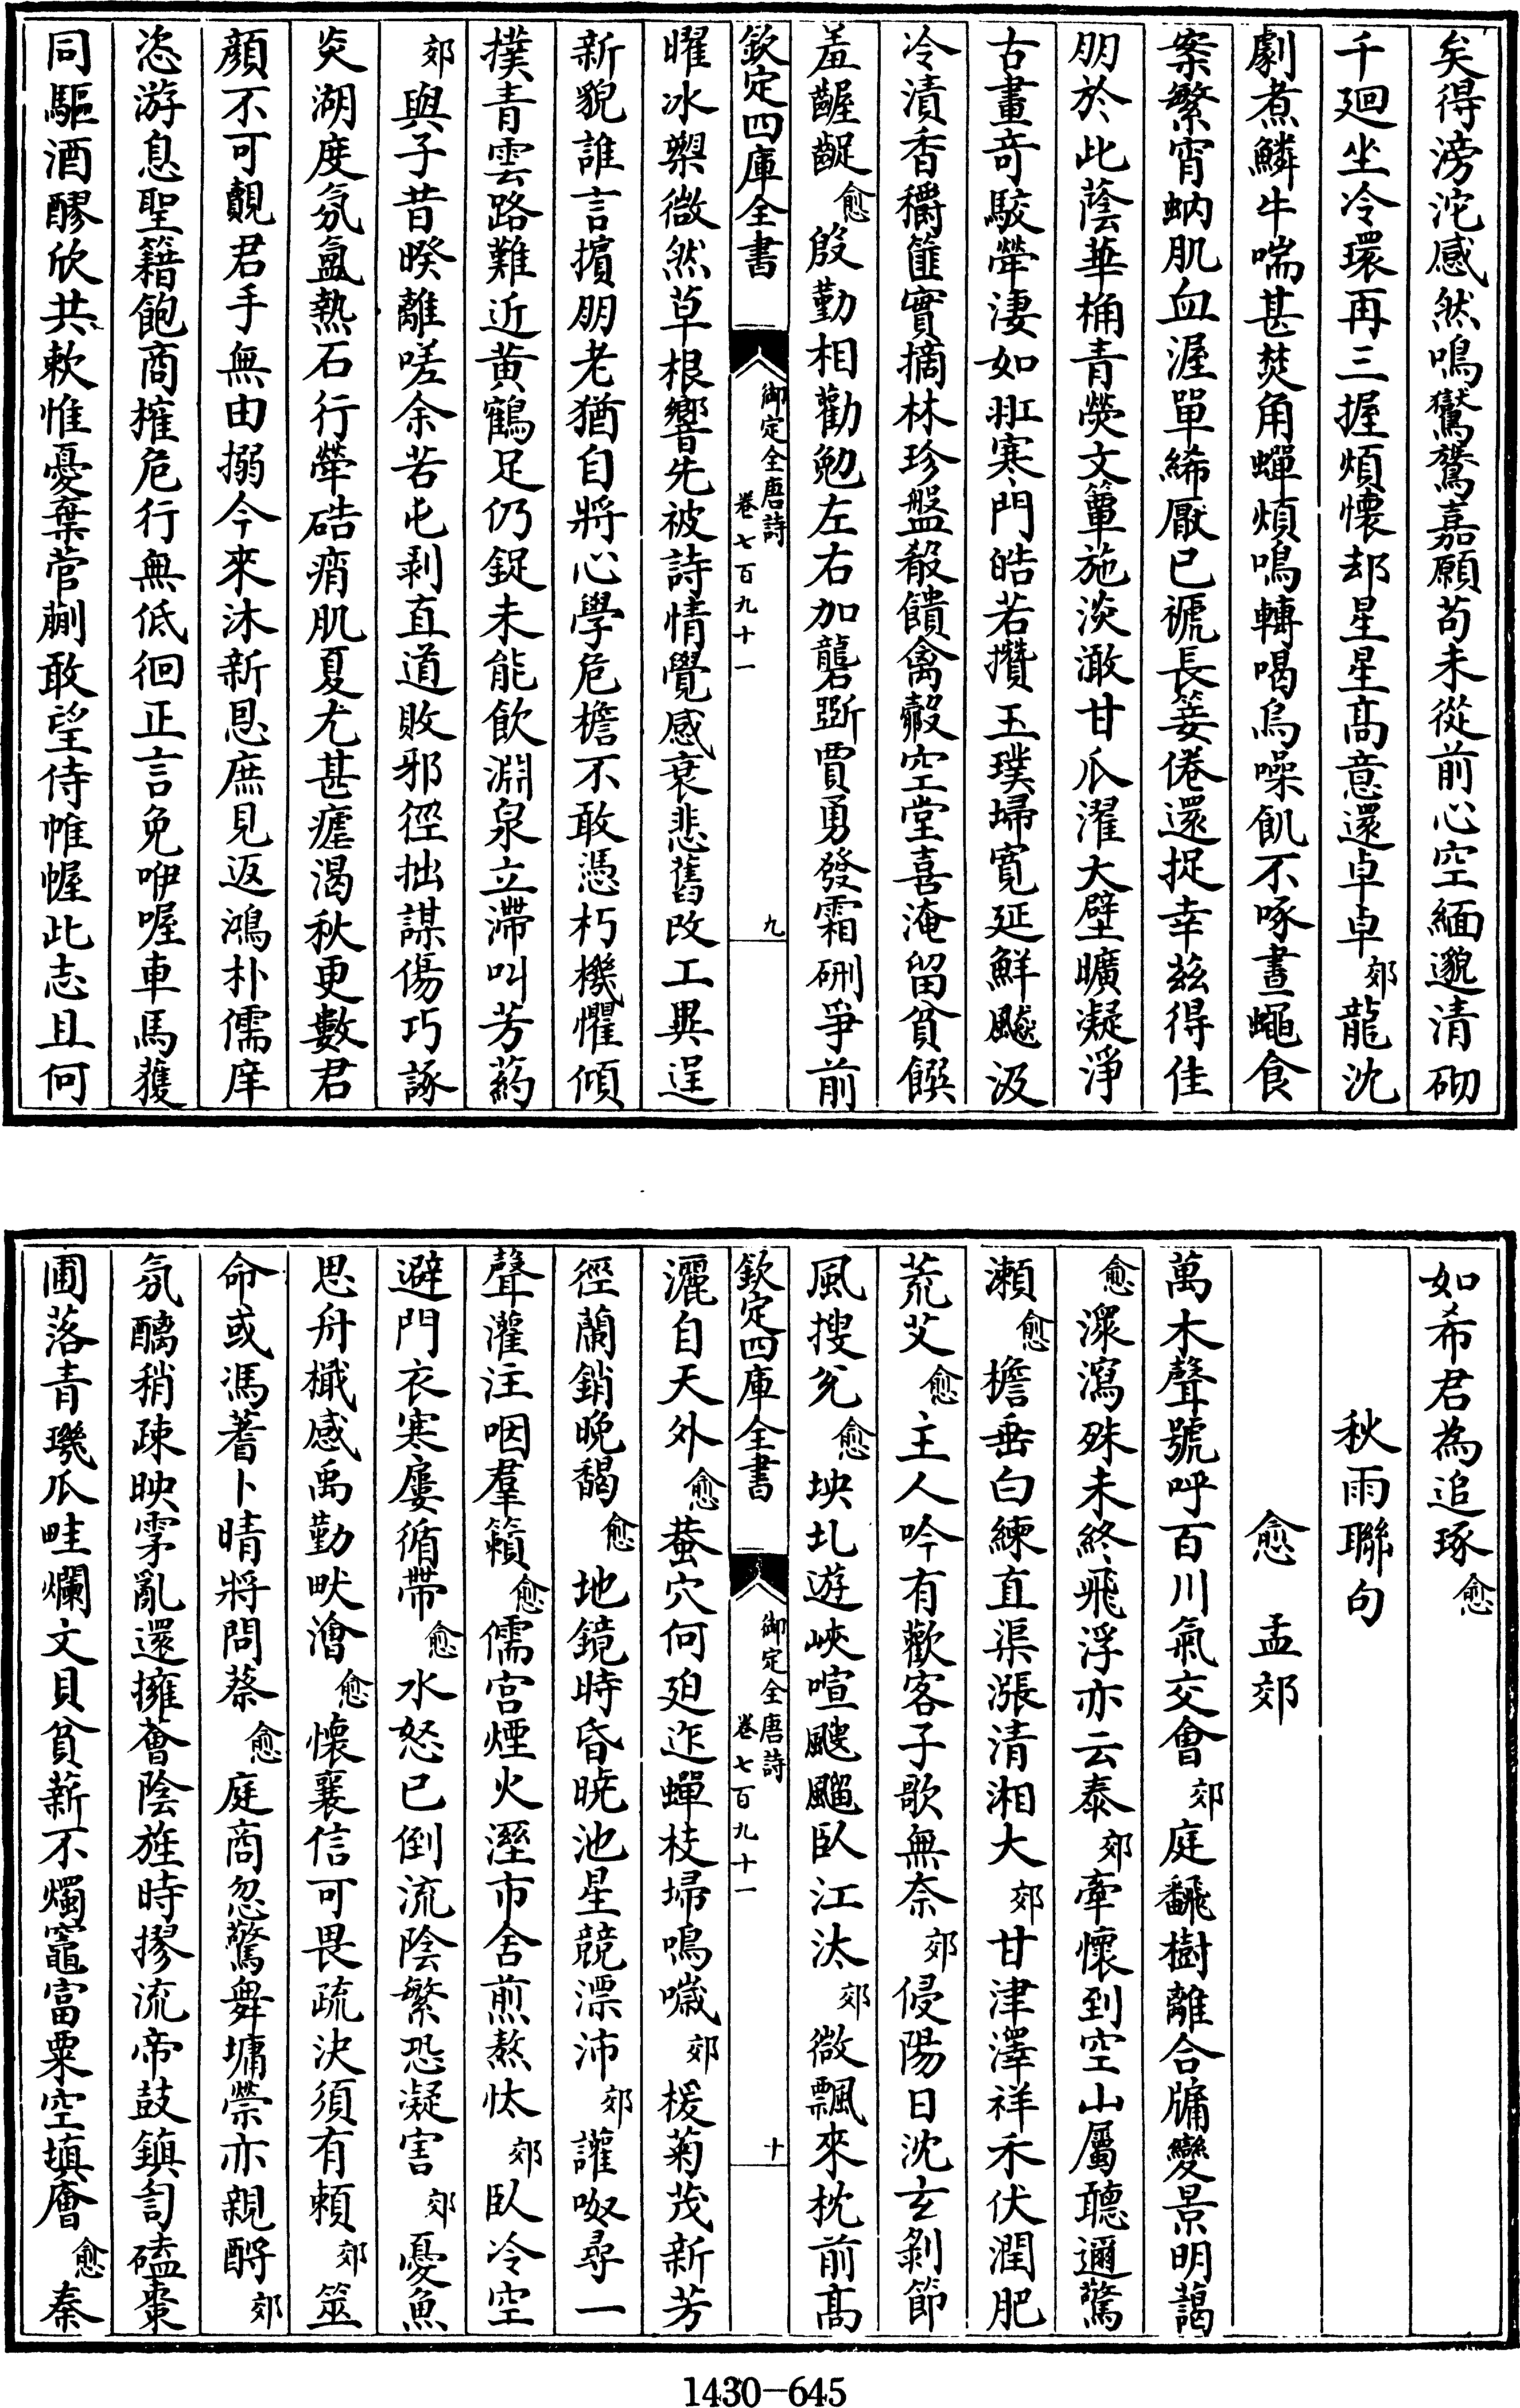 矣得滂沱感然鳴鸑鷟嘉願苟未從前心空緬邈清砌
千廻坐冷環再三握煩懷却星星髙意還卓卓郊龍沈
劇煮鱗牛喘甚焚角蟬煩鳴轉喝烏噪飢不啄晝蠅食
案繁宵蚋肌血渥單絺厭已褫長箑倦還捉幸兹得佳
朋於此蔭華桷青熒文簟施淡澉甘瓜濯大壁曠凝淨
古畫竒駮犖淒如羾寒門皓若攢玉璞掃寛延鮮飈汲
冷漬香穱篚實摘林珍盤殽饋禽鷇空堂喜淹留貧饌
羞齷齪愈殷勤相勸勉左右加礱斵賈勇發霜硎爭前
欽定四庫全書
御定全唐詩
卷七百九十一
九
曜冰槊微然草根響先被詩情覺感衰悲舊改工異逞
新貌誰言擯朋老猶自將心學危檐不敢憑朽機懼傾
撲青雲路難近黄鶴足仍鋜未能飲淵泉立滯叫芳葯
郊與子昔暌離嗟余苦屯剥直道敗邪徑拙謀傷巧諑
炎湖度氛氲熱石行犖硞痟肌夏尤甚瘧渇秋更數君
顔不可覿君手無由搦今來沐新恩庶見返鴻朴儒庠
恣游息聖籍飽商搉危行無低徊正言免咿喔車馬獲
同驅酒醪欣共欶惟憂棄菅蒯敢望侍帷幄此志且何
如希君為追琢愈
秋雨聯句
愈　孟郊
萬木聲號呼百川氣交會郊庭翻樹離合牗變景明藹
愈潨瀉殊未終飛浮亦云泰郊牽懷到空山屬聽邇驚
瀬愈檐垂白練直渠漲清湘大郊甘津澤祥禾伏潤肥
荒艾愈主人吟有歡客子歌無奈郊侵陽日沈玄剝節
風搜兊愈坱圠遊峽喧颼飀臥江汰郊微飄來枕前髙
欽定四庫全書
御定全唐詩
卷七百九十一
十
灑自天外愈蛩穴何廹迮蟬枝掃鳴噦郊楥菊茂新芳
徑蘭銷晚馤愈地鏡時昏曉池星競漂沛郊讙呶尋一
聲灌注咽羣籟愈儒宫煙火溼市舍煎熬忲郊臥冷空
避門衣寒屢循帶愈水怒已倒流陰繁恐凝害郊憂魚
思舟檝感禹勤畎澮愈懷襄信可畏疏決須有賴郊筮
命或馮蓍卜晴將問蔡愈庭商忽驚舞墉禜亦親酹郊
氛醨稍疎映雺亂還擁薈陰旌時摎流帝鼓鎮訇磕棗
圃落青璣瓜畦爛文貝貧薪不燭竈富粟空填廥愈秦
1430-645